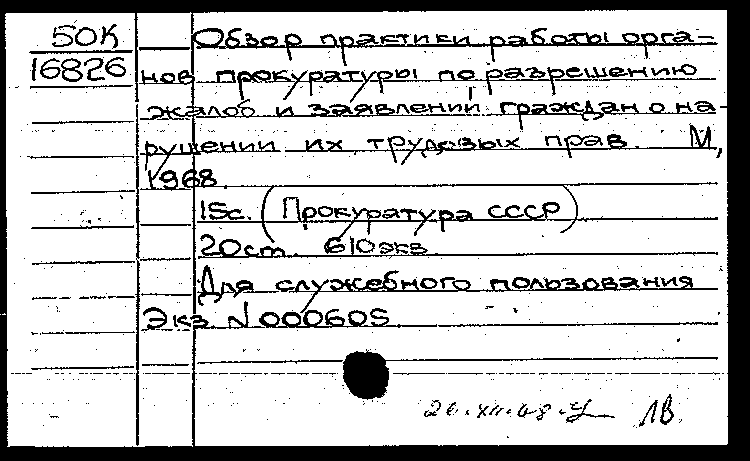 50К
16826
Обзор практики работы орга-
нов прокуратуры по разрешению
жалоб и заявлений граждан о на-
рушении их трудовых прав. М,
1968.
15с. (Прокуратура СССР)
20см. 610экз.
Для служебного пользования
Экз. N 000605
ЛВ.